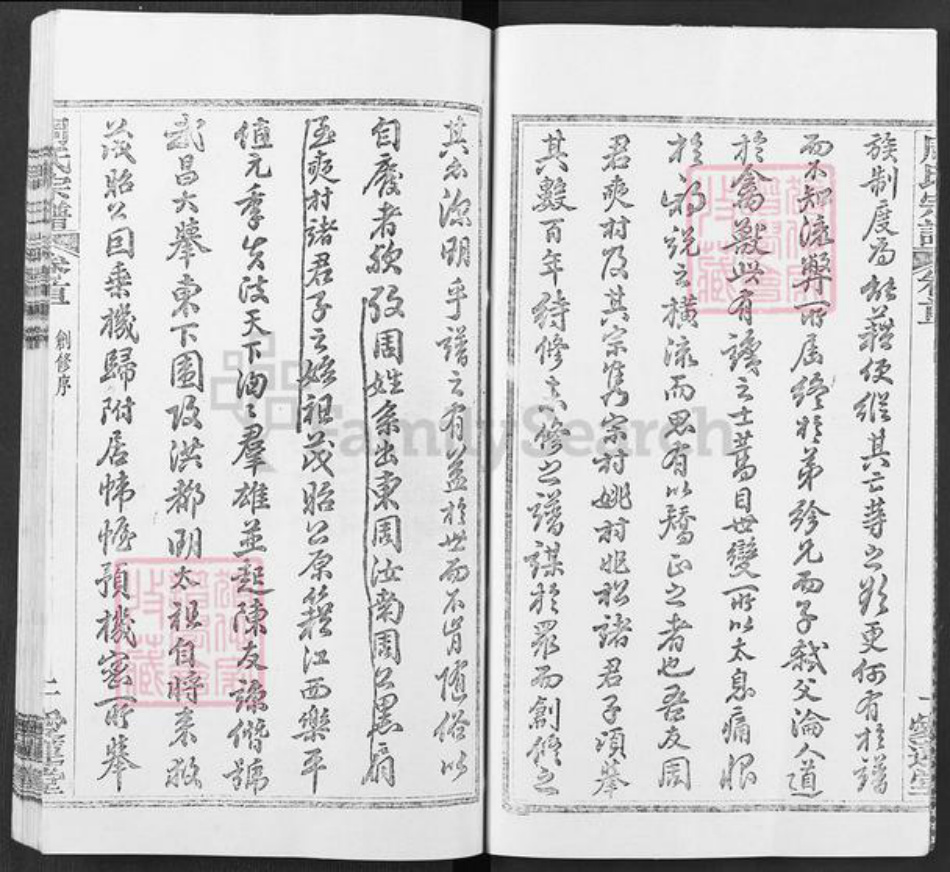 族制度為能藉便縱其亡等之欲更何有於譜
而不知流弊所届終於弟紾兄而子弒父淪人道
於禽獸此有讀之士蒿目世變所以太息痛恨
於邪說之橫流而思有以矯正之者也吾友周
君爽村及其宗雋宗村姚村松諸君子頃舉
其數百年待修之譜謀於眾而創修之
周氏宗譜
卷首
一
愛蓮堂
其知源明乎譜之有益於世而不肯隨俗以
自廢者歟攷周姓系出東周汝南周公黑肩
爽村諸君子之始祖茂昭公原籍江西樂平
值元季失政天下洶洶羣雄並起陳友諒僭號
武昌大舉東下圍攻洪都明太祖自將來救
茂昭公回乘機歸附居帷幄預機密所舉
周氏宗譜
卷首
創修序
二
愛蓮堂
FamilySearch